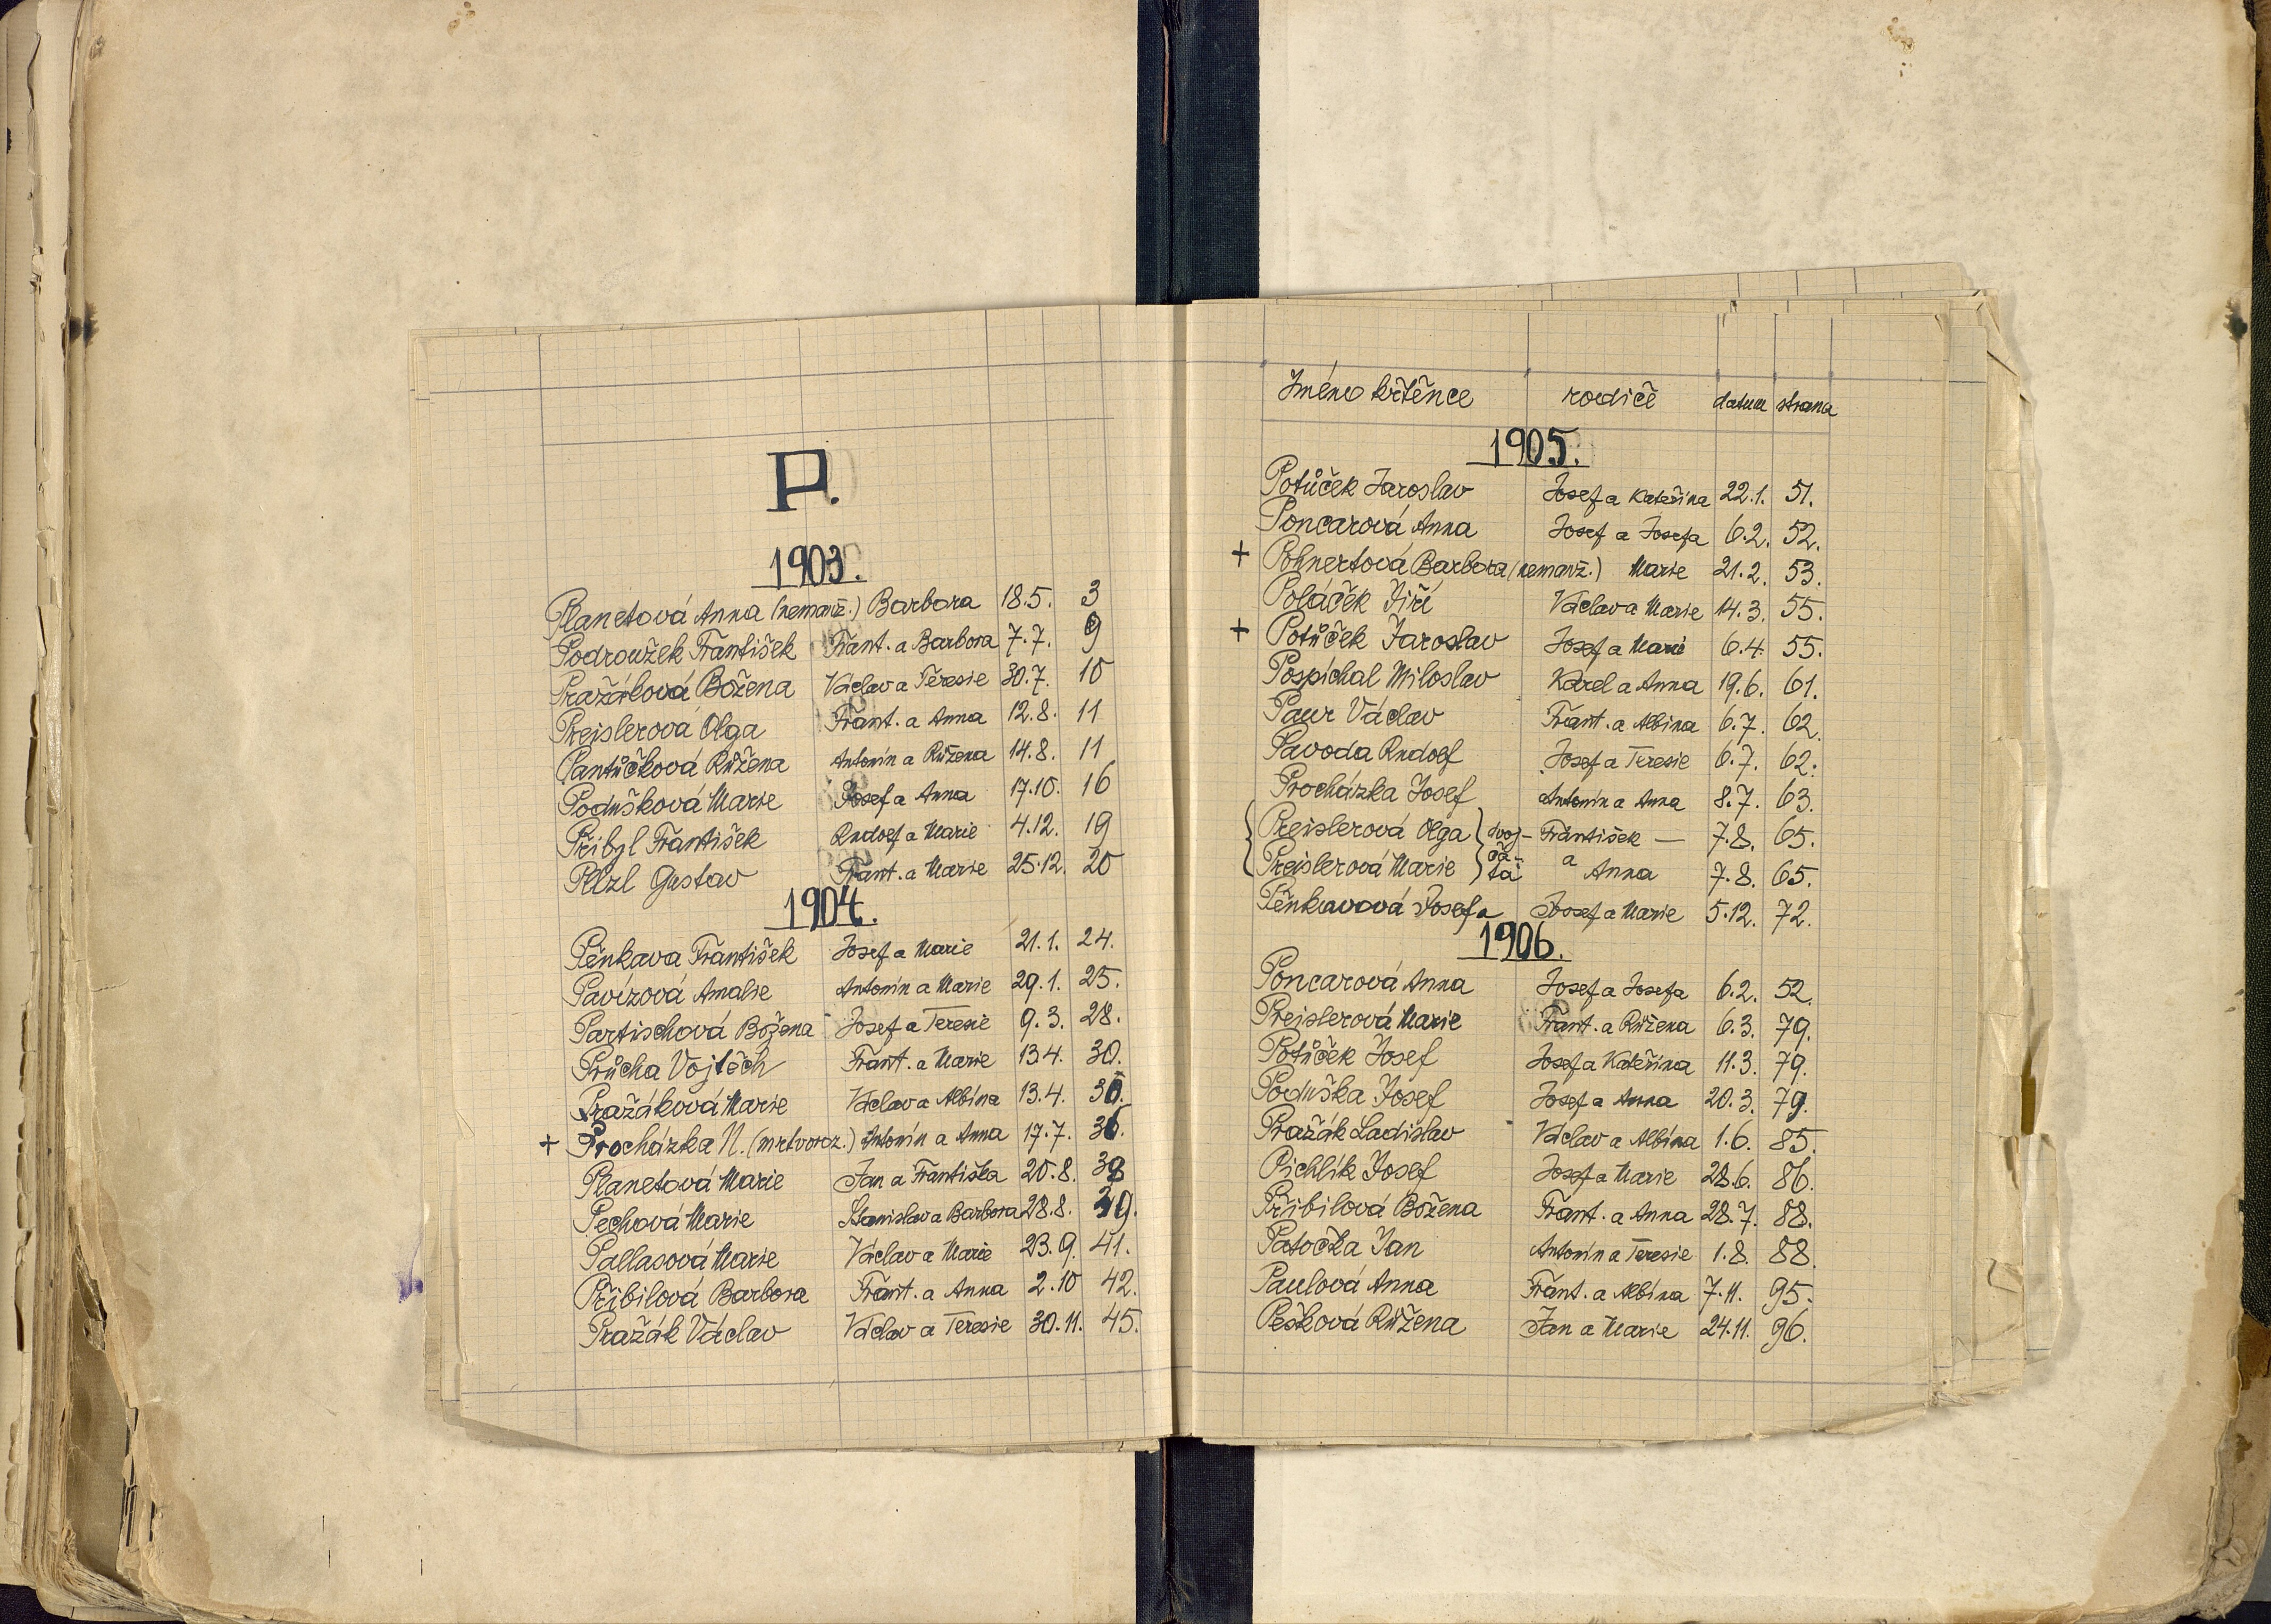 P.
1903.
Planetová Anna (nemanž.) Barbora 18.5. 3
Podroužek František Frant. a Barbora 7.7. 9
Pražáková Božena Václav a Teresie 30.7. 10
Preislerová Olga Frant. a Anna 12.8. 11
Pantůčková Růžena Antonín a Růžena 14.8. 11
Podušková Marie Josef a Anna 17.10. 16
Přibyl František Rudolf a Marie 4.12. 19
Pelzl Gustav Frant. a Marie 25.12. 20
1904.
Pěnkava František Josef a Marie 21.1. 24.
Pavízová Amalie Antonín a Marie 29.1. 25.
Partischová Božena Josef a Teresie 9.3. 28.
Průcha Vojtěch Frant. a Marie 13.4. 30.
Pražáková Marie Václav a Albína 13.4. 30.
+ Procházka N. (mrtvoroz.) Antonín a Anna 17.7. 36.
Planetová Marie Jan a Františka 20.8. 38
Pechová Marie Stanislav a Barbora 28.8. 39.
Pallasová Marie Václav a Marie 23.9. 41.
Přibilová Barbora Frant. a Anna 2.10 42.
Pražák Václav Václav a Teresie 30.11. 45.
Jméno křtěnce rodiče datum strana
1905.
Potůček Jaroslav Josef a Kateřina 22.1. 51.
Poncarová Anna Josef a Josefa 6.2. 52.
+ Pohnertová Barbora (nemanž.) Marie 21.2. 53.
Poláček Jiří Václav a Marie 14.3. 55.
+ Potůček Jaroslav Josef a Marie 6.4. 55.
Pospíchal Miloslav Karel a Anna 19.6. 61.
Paur Václav Frant. a Albína 6.7. 62.
Pavoda Rudolf Josef a Teresie 6.7. 62.
Procházka Josef Antonín a Anna 8.7. 63.
Preislerová Olga dvoj- František — 7.8. 65.
Preislerová Marie ča- tá a Anna 7.8. 65.
Pěnkavová Josefa Josef a Marie 5.12. 72.
1906.
Poncarová Anna Josef a Josefa 6.2. 52.
Preislerová Marie Frant. a Růžena 6.3. 79.
Potůček Josef Josef a Kateřina 11.3. 79.
Poduška Josef Josef a Anna 20.3. 79.
Pražák Ladislav Václav a Albína 1.6. 85.
Pichlík Josef Josef a Marie 28.6. 86.
Přibilová Božena Frant. a Anna 28.7. 88.
Patočka Jan Antonín a Teresie 1.8. 88.
Paulová Anna Frant. a Albína 7.11. 95.
Pešková Růžena Jan a Marie 24.11. 96.